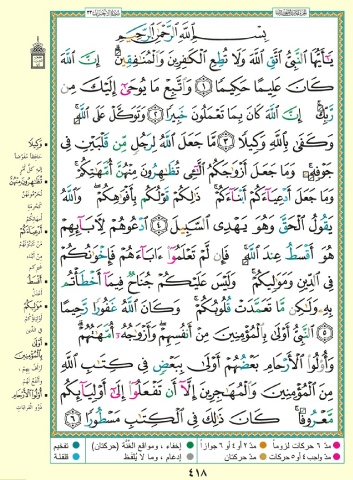 بِسْمِ اللَّهِ الرَّحْمَٰنِ الرَّحِيمِ
يَٰٓأَيُّهَا النَّبِيُّ اتَّقِ اللَّهَ وَلَا تُطِعِ الْكَٰفِرِينَ وَالْمُنَٰفِقِينَ إِنَّ اللَّهَ
كَانَ عَلِيمًا حَكِيمًا ١ وَاتَّبِعْ مَا يُوحَىٰٓ إِلَيْكَ مِن
رَّبِّكَ إِنَّ اللَّهَ كَانَ بِمَا تَعْمَلُونَ خَبِيرًا ٢ وَتَوَكَّلْ عَلَى اللَّهِ
وَكَفَىٰ بِاللَّهِ وَكِيلًا ٣ مَّا جَعَلَ اللَّهُ لِرَجُلٍ مِّن قَلْبَيْنِ فِي
جَوْفِهِۦ وَمَا جَعَلَ أَزْوَٰجَكُمُ الَّٰٓـِٔي تُظَٰهِرُونَ مِنْهُنَّ أُمَّهَٰتِكُمْ
وَمَا جَعَلَ أَدْعِيَآءَكُمْ أَبْنَآءَكُمْ ذَٰلِكُمْ قَوْلُكُم بِأَفْوَٰهِكُمْ وَاللَّهُ
يَقُولُ الْحَقَّ وَهُوَ يَهْدِي السَّبِيلَ ٤ ادْعُوهُمْ لِأٓبَآئِهِمْ
هُوَ أَقْسَطُ عِندَ اللَّهِ فَإِن لَّمْ تَعْلَمُوٓا۟ ءَابَآءَهُمْ فَإِخْوَٰنُكُمْ
فِي الدِّينِ وَمَوَٰلِيكُمْ وَلَيْسَ عَلَيْكُمْ جُنَاحٌ فِيمَآ أَخْطَأْتُم
بِهِۦ وَلَٰكِن مَّا تَعَمَّدَتْ قُلُوبُكُمْ وَكَانَ اللَّهُ غَفُورًا رَّحِيمًا
٥ النَّبِيُّ أَوْلَىٰ بِالْمُؤْمِنِينَ مِنْ أَنفُسِهِمْ وَأَزْوَٰجُهُۥٓ أُمَّهَٰتُهُمْ
وَأُو۟لُوا۟ الْأَرْحَامِ بَعْضُهُمْ أَوْلَىٰ بِبَعْضٍ فِي كِتَٰبِ اللَّهِ
مِنَ الْمُؤْمِنِينَ وَالْمُهَٰجِرِينَ إِلَّآ أَن تَفْعَلُوٓا۟ إِلَىٰٓ أَوْلِيَآئِكُم
مَّعْرُوفًا كَانَ ذَٰلِكَ فِي الْكِتَٰبِ مَسْطُورًا ٦
وَكِيلًا
تُظَٰهِرُونَ مِنْهُنَّ
أَدْعِيَآءَكُمْ
أَقْسَطُ
مَوَٰلِيكُمْ
أَوْلَىٰ
بِالْمُؤْمِنِينَ
أُو۟لُوا۟ الْأَرْحَامِ
مدّ ٦ حركات لزوماً مدّ ٢ أو ٤ أو ٦ جوازاً إخفاء، ومواقع الغُنَّة (حركتان) تفخيم
مدّ واجب ٤ أو ٥ حركات مدّ حركتان إدغام، وما لا يُلفَظ قلقلة
٤١٨